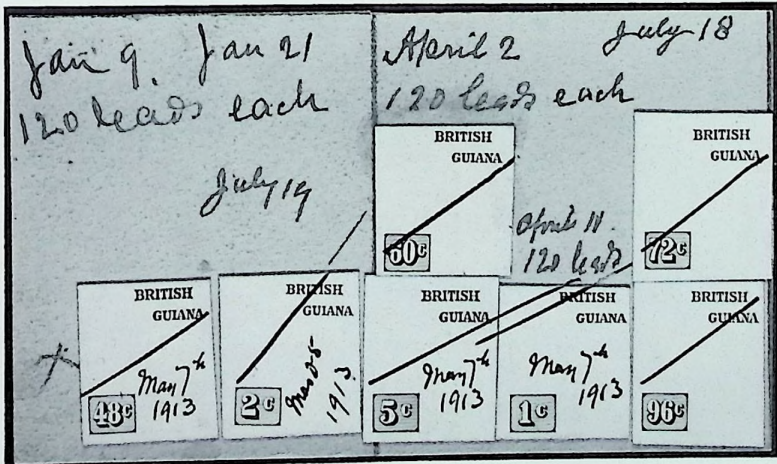 Jan 9. Jan 21
120 leads each
April 2
July 18
120 leads each
July 19
BRITISH
GUIANA
60c
April 11.
120 leads
BRITISH
GUIANA
72c
BRITISH
GUIANA
May 7th
1913
48c
BRITISH
GUIANA
1913
2c
BRITISH
GUIANA
May 7th
1913
5c
BRITISH
GUIANA
May 7th
1913
1c
BRITISH
GUIANA
96c